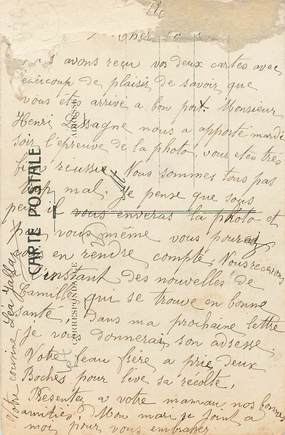 avons reçu vos deux cartes avec
beaucoup de plaisir, de savoir que
vous êtes arrivé a bon port. Monsieur
Henri Lessagne nous a apporté mardi
soir l'épreuve de la photo, vous etes tres
bien reussie. Nous sommes tous pas
trop mal. Je pense que sous
peu il vous enveras la photo et
vous même vous pourez
vous en rendre compte. Nous recevons
l'instant des nouvelles de
Camille, qui se trouve en bonne
santé, dans ma prochaine lettre
Je vous donnerais son adresse
Votre beau frère a prie deux
Boches pour live sa récolte,
Presentez a votre maman nos bonnes
amitiés. Mon mari se joint a
moi pour vous embrasser
Votre cousine Léa
CARTE POSTALE
CORRESPONDANCE